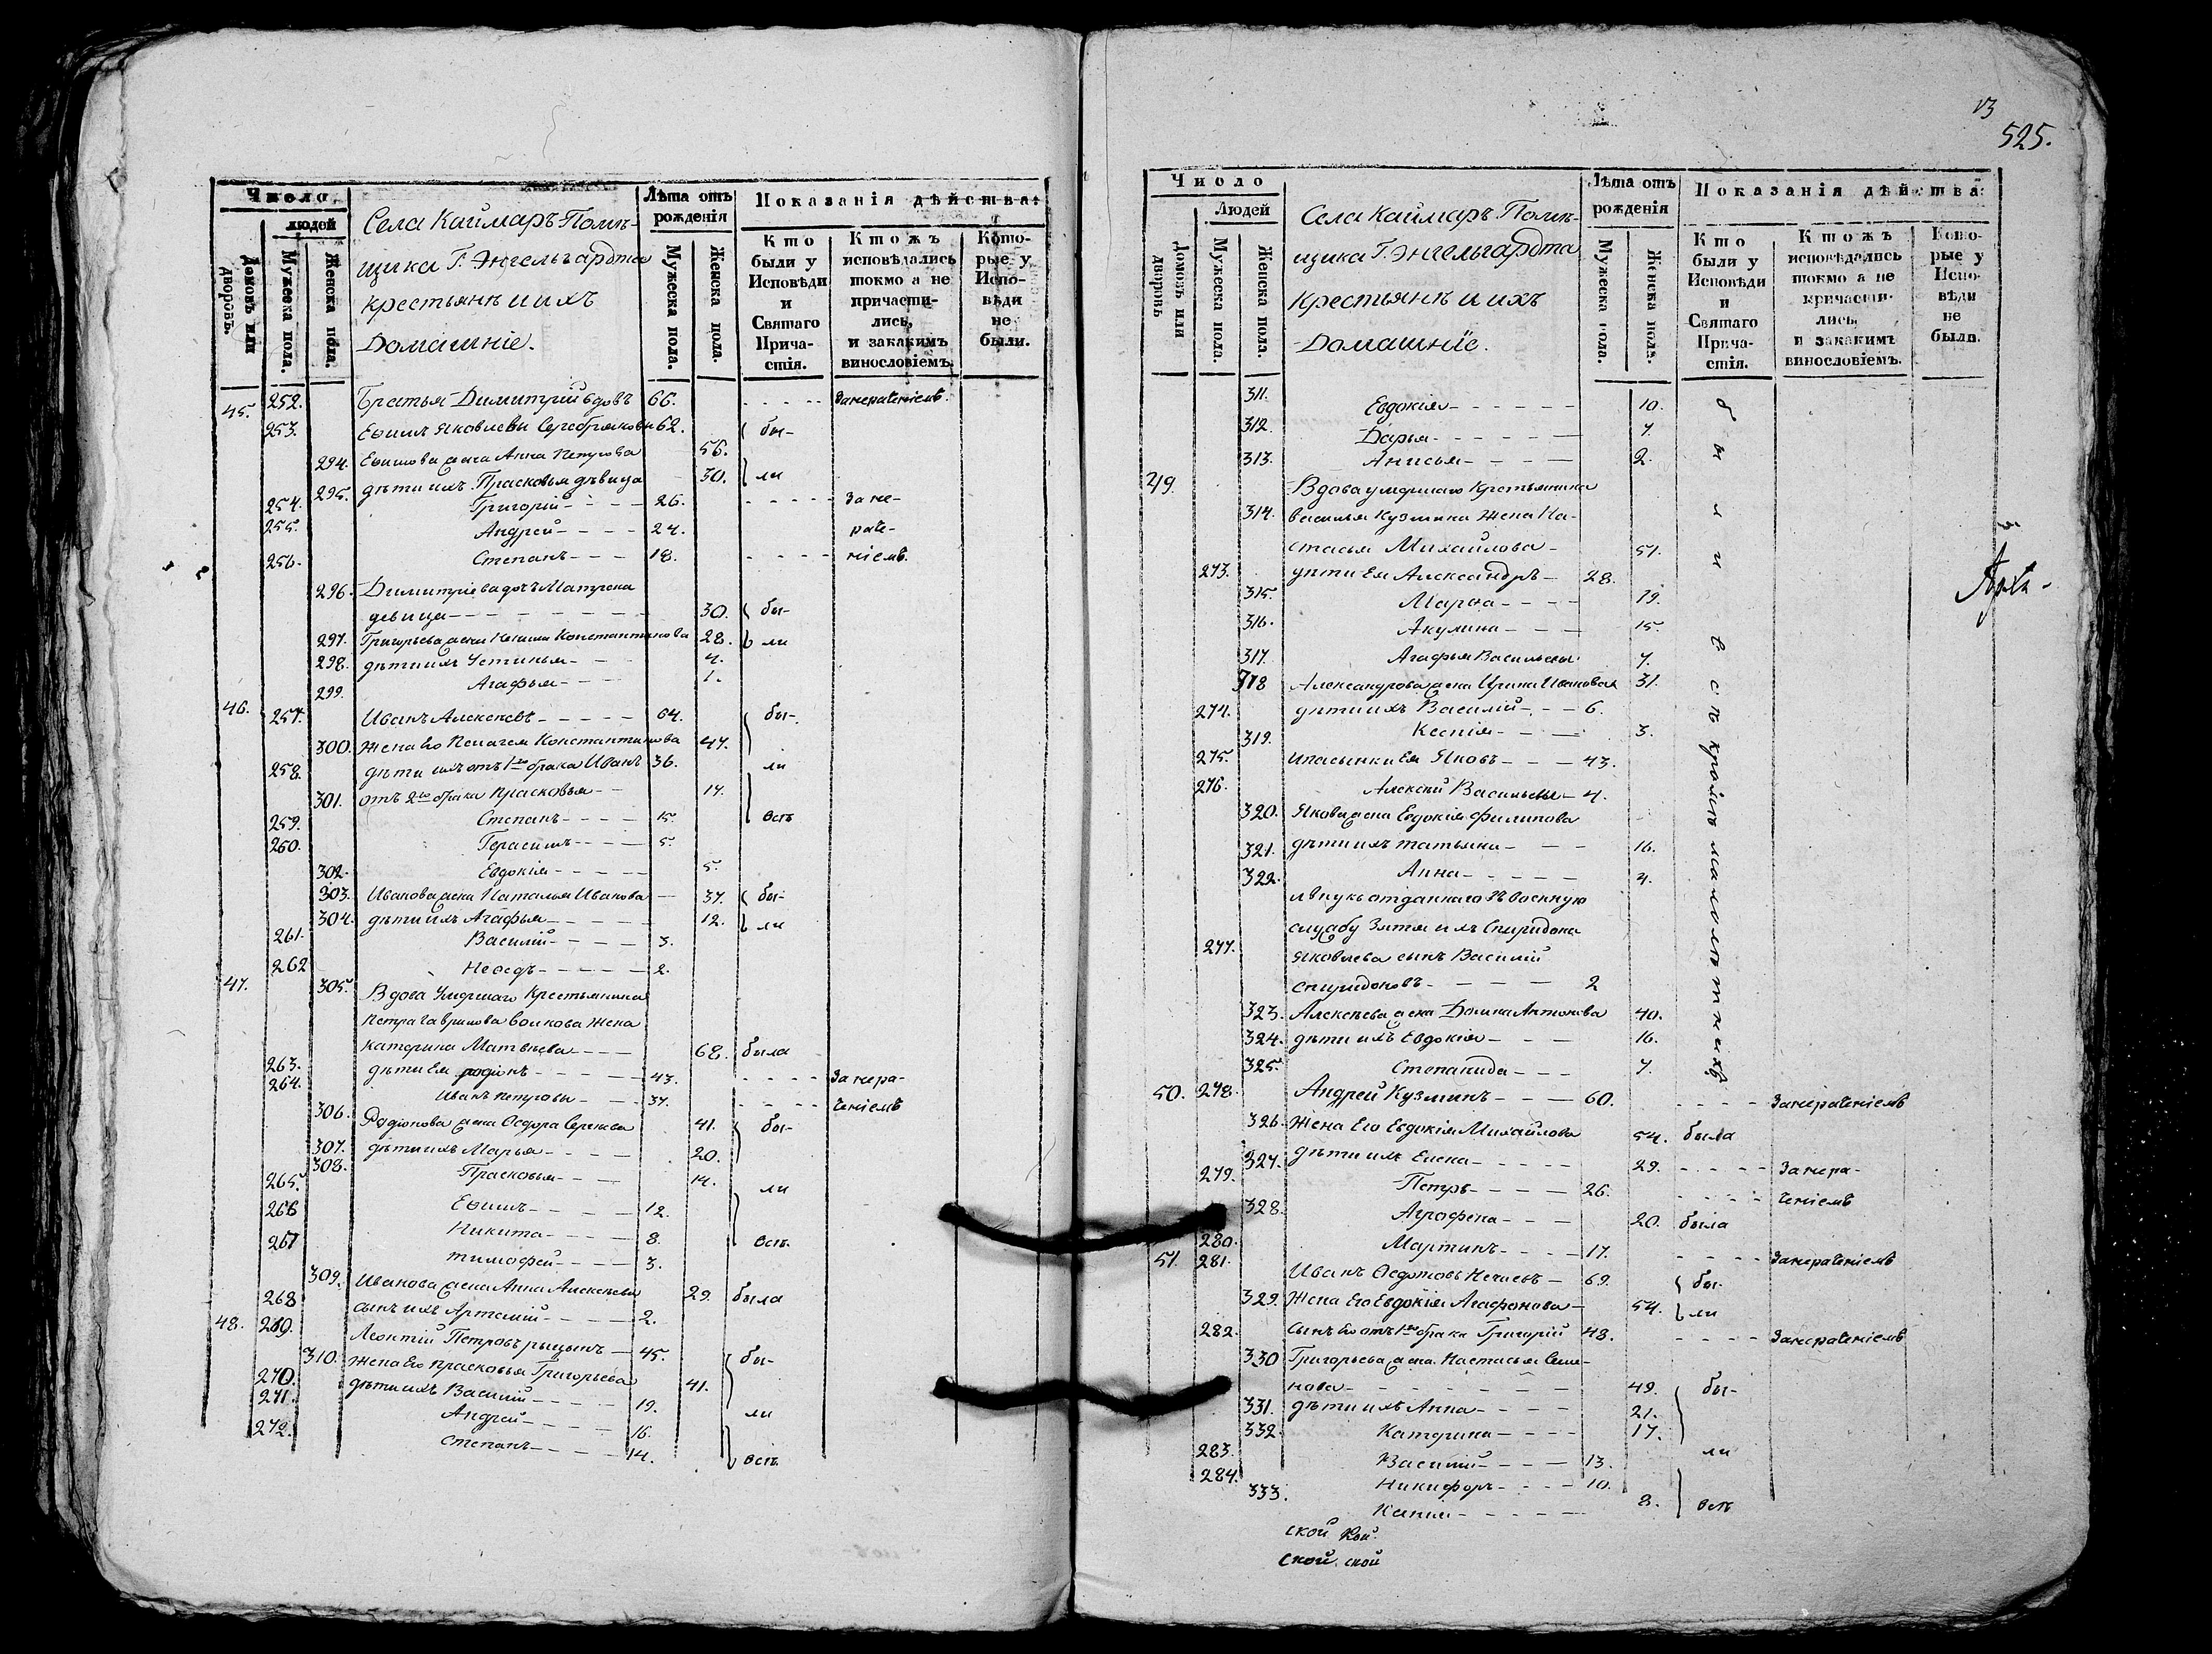 Число
людей
Домовъ или дворовъ.
Мужеска пола.
Женска пола.
Села Каймаръ Помѣ-
щика Г. Энгельгардта
крестьянѣ и ихъ
Домашніе.
Лѣта отъ рожденія
Мужеска пола.
Женска пола.
Показанія дѣйства:
Кто были у Исповѣди и Святаго Причастія.
Ктожъ исповѣдались токмо а не причастились, и закакимъ винословіемъ.
Которые у Исповѣди не были.
45. 252. Братья Димитрий вдовъ 66. - - - - - За нераченіемъ.
253. Еѳимъ Яковлевы Серебряковы 62. бы-
294. Еѳимова жена Анна Петрова 56.
295. дѣти ихъ Прасковья дѣвица 30. ли
254. Григорій - - - - 26. - - - - - За не-
255. Андрей - - - - 24. раче-
256. Степанъ - - - 18. - - - - ніемъ.
296. Димитріева дочь Матрена
девица - - - - - - - - 30. бы-
297. Григорьева жена Константинова 28. ли
298. дѣти ихъ Устинья - - - 4.
299. Агафья - - - 1.
46. 257. Иванъ Алексѣевъ - - - - - 64. бы-
300. Жена Его Пелагея Константинова 47.
258. дѣти ихъ отъ 1го брака Иванъ 36. ли
301. отъ 2го брака Прасковья - - 17.
259. Степанъ - - - - 15. всѣ
260. Герасимъ - - - - 5.
302. Евдокія - - - - - 5.
303. Иванова жена Наталья Иванова 37. бы-
304. дѣти ихъ Агафья - - - - - 12. ли
261. Василій - - - - - 3.
262 - - - - - 2.
47. 305. Вдова Умершаго Крестьянина
Петра Гаврилова Волкова Жена
Катерина Матвѣева - - - - 68. была
263. дѣти Ея Родіонъ - - - - - 43. - - - - За нера-
264. Иванъ Петровы - - - 37. - - - - ченіемъ
306. Родіонова жена Ѳедора Сергѣева 41. бы-
307. дѣти ихъ Марья - - - - 20.
308. Прасковья - - - - 14. ли
265. Еѳимъ - - - - 12.
266 Никита - - - - 8.
267 Тимофей - - - - 3. всѣ
309. Иванова жена Анна Алексѣева 29. была
268 сынъ ихъ Артемій - - - - 2.
48. 269. Леонтій Петровъ - 45. бы-
310. Жена Его Прасковья Григорьева 41.
270. дѣти ихъ Василій - - - - 19. ли
271. Андрей - - - - 16.
272. Степанъ - - - - 14. всѣ
13
525.
Число
Людей
Домовъ или дворовъ
Мужеска пола.
Женска пола.
Села Каймаръ Помѣ-
щика Г. Энгельгардта
Крестьянѣ и ихъ
Домашніе.
Лѣта отъ рожденія
Мужеска пола.
Женска пола.
Показанія дѣйства:
Кто были у Исповѣди и Святаго Причастія.
Ктожъ исповѣдались токмо а не причастились, и закакимъ винословіемъ.
Которые у Исповѣди не были.
были всѣ кромѣ малолѣтнихъ
311. Евдокія - - - - - - 10.
312. Дарья - - - - - - 7.
313. Анисья - - - - - 2.
49. Вдова умершаго Крестьянина
314. Василья Кузмина Жена На-
стасья Михайлова - 51.
273. дѣти Ея Александръ - 28.
315. Марѳа - - - - 19.
316. Акулина - - - 15.
317. Агафья Васильевы 7.
318 Александрова жена Ирина Иванова 31.
274. дѣти ихъ Василій - - - 6.
319. Ксенія - - - - 3.
275. пасынки Ея Яковъ - - - 43.
276. Алексѣй Васильевы - 4.
320. Якова жена Евдокія Филипова
321. дѣти ихъ Татьяна - - - 16.
322. Анна - - - - - 4.
и внукъ отданнаго въ военную
службу Зятя ихъ Спиридона
277. Яковлева сынъ Василій
Спиридоновъ - - - - 2
323. Алексѣева жена Домна Антонова 40.
324. дѣти ихъ Евдокія - - - 16.
325. Степанида - - - 7.
50. 278. Андрей Кузминъ - - - 60. - - - - За нераченіемъ
326. Жена Его Евдокія Михайлова 54. была
327. дѣти ихъ Елена - - - - - 29. - - - - - За нера-
279. Петръ - - - - 26. - - - - ченіемъ
328. Аграфена - - - 20. была
280. Мартинъ - - - - 17. - - - - За нераченіемъ
51. 281. Иванъ Ѳедотовъ Нечаевъ - 69. бы-
329. Жена Его Евдокія Агафонова - 54. ли
282. Сынъ Его отъ 1го брака Григорій 48. - - - - За нераченіемъ
330 Григорьева жена Настасья Семе-
нова - - - - - - - 49. бы-
331. дѣти ихъ Анна - - - - 21.
332. Катерина - - - - 17.
283. Василій - - - - 13. ли
284. Никифоръ - - - - 10.
333. - - - - - 8. всѣ
ской кой
ской ской